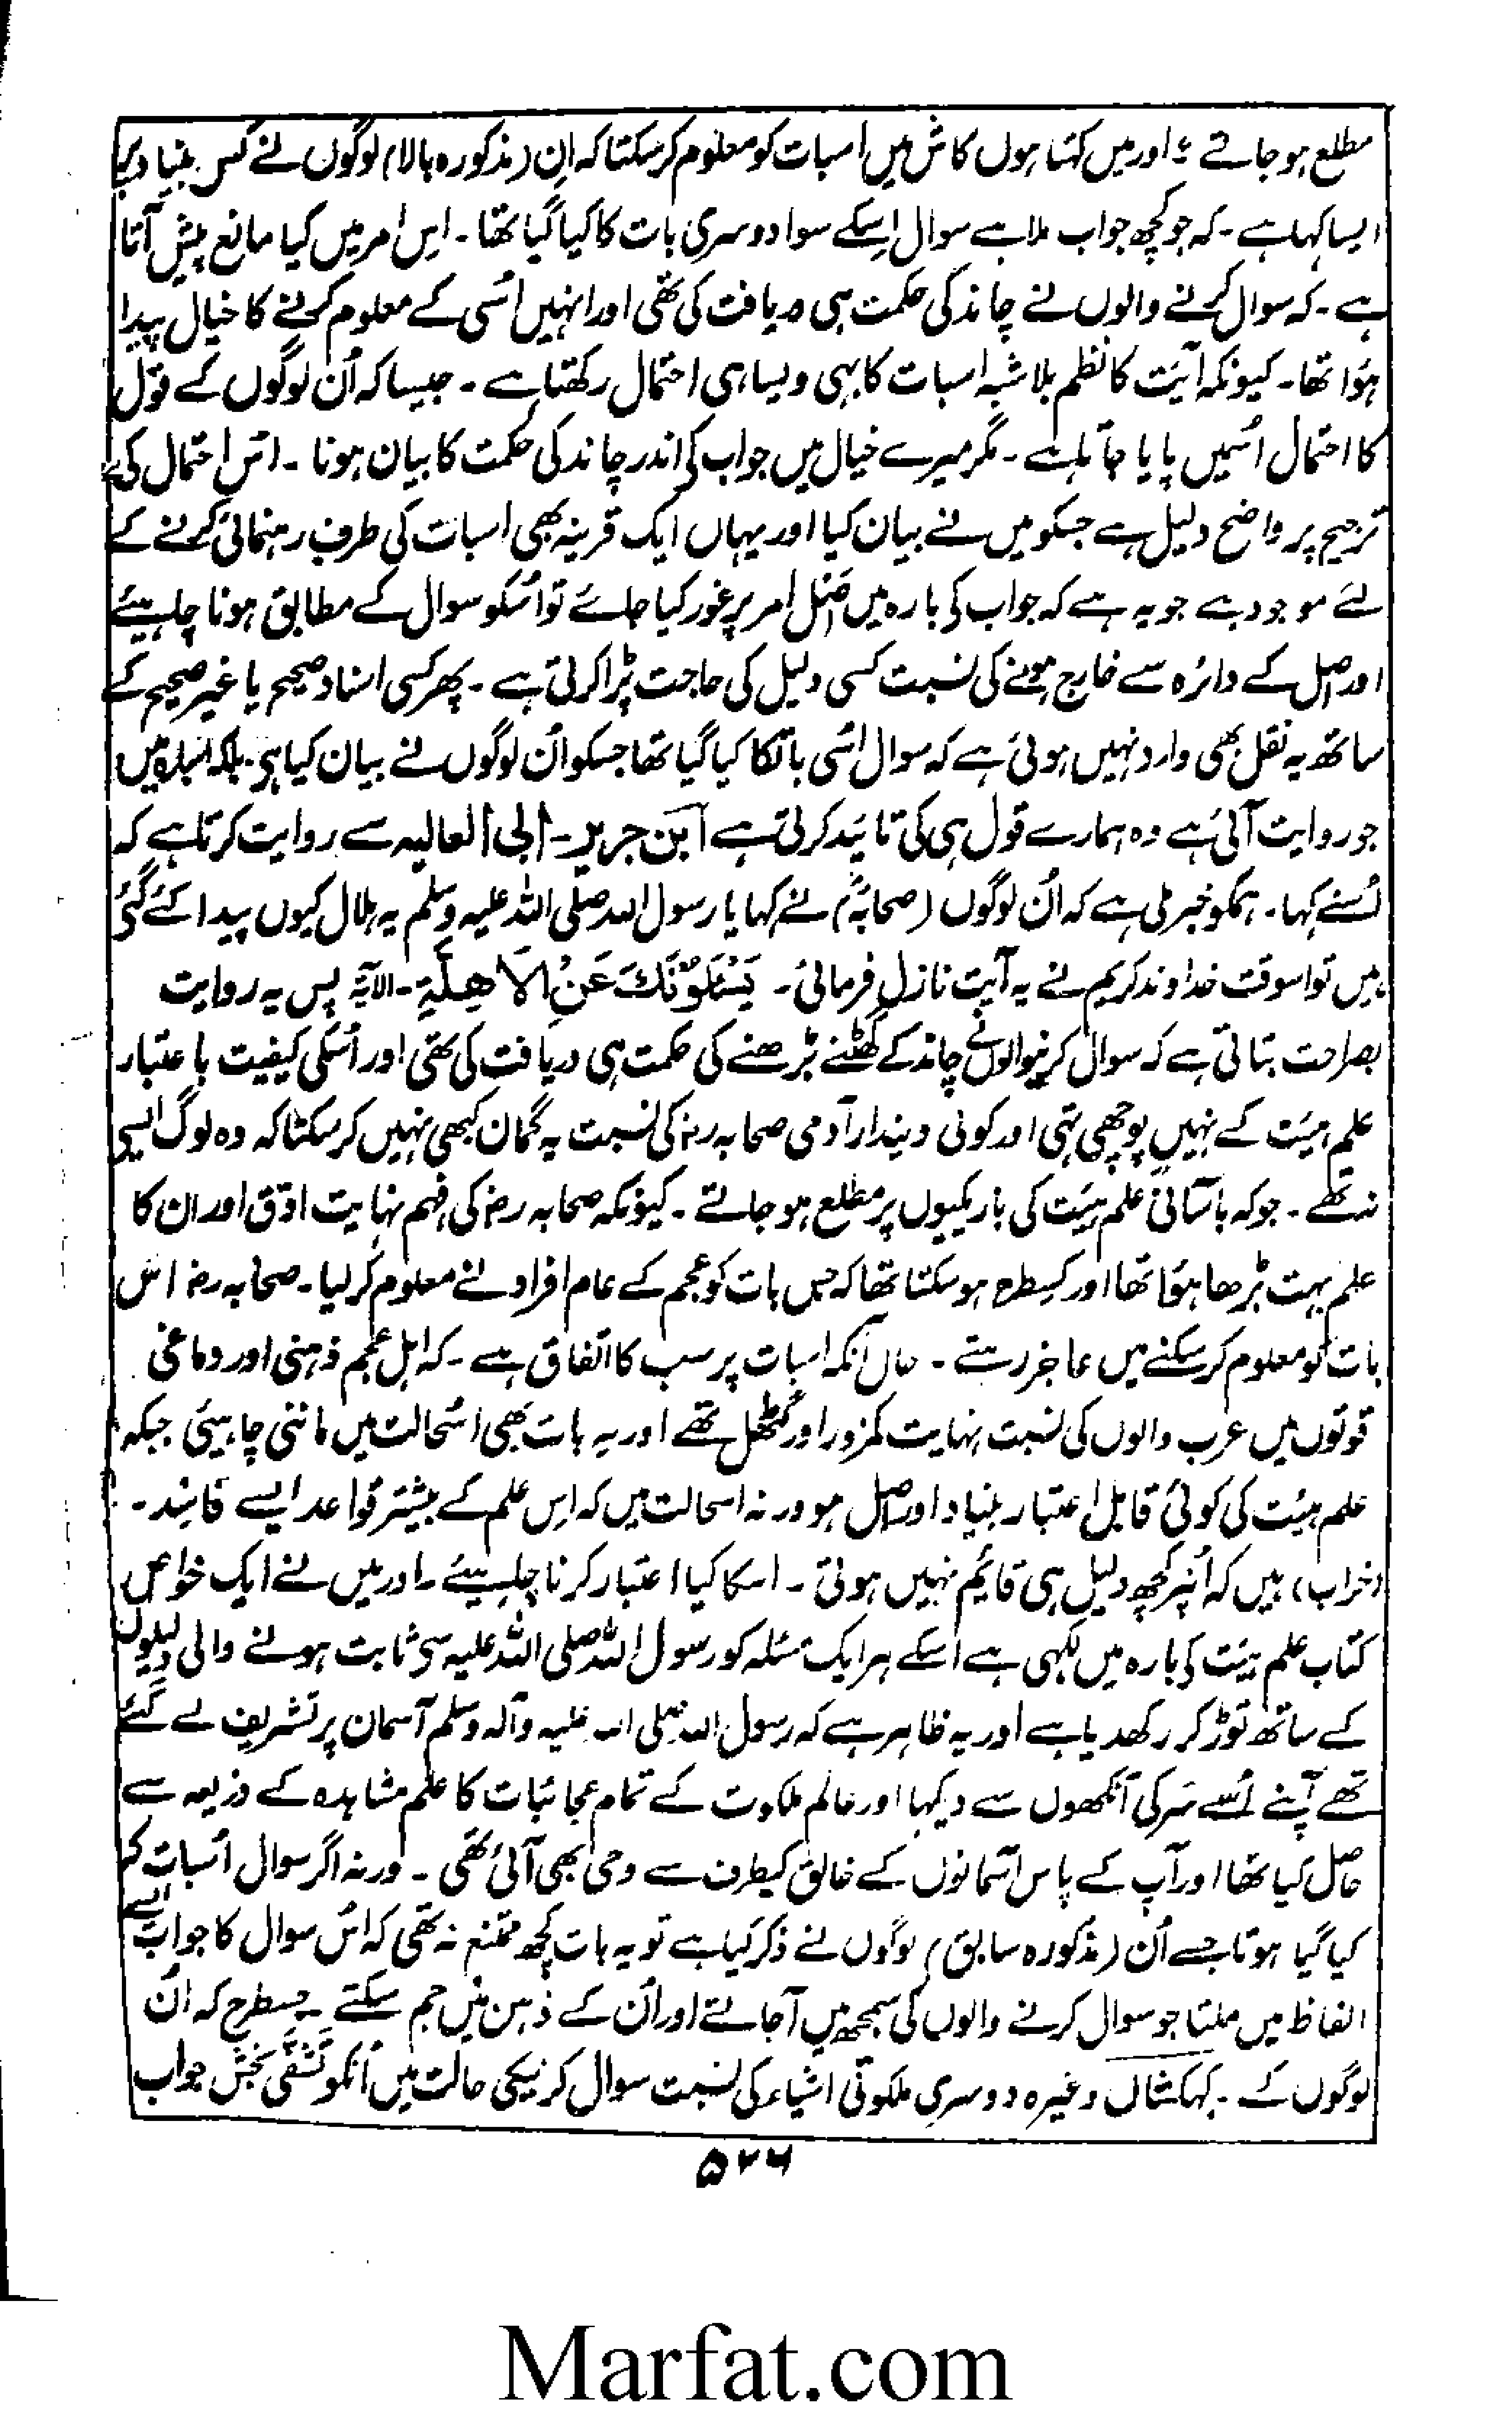 مطلع ہو جاتے ؟ اور میں کہتا ہوں کاش میں اسبات کو معلوم کر سکتا کہ ان (مذکورہ بالا) لوگوں نے کس بنیاد پر
ایسا کہا ہے ۔ کہ جو کچھ جواب ملا ہے سوال اسکے سوا دوسری بات کا کیا گیا تھا ۔ اِس امر میں کیا مانع پیش آتا
ہے ۔ کہ سوال کرنے والوں نے چاند کی حکمت ہی دریافت کی تھی اور انہیں اُسی کے معلوم کرنے کا خیال پیدا
ہوا تھا ۔ کیونکہ آیت کا نظم بلا شبہ اسبات کا بہی ویسا ہی احتمال رکھتا ہے ۔ جیسا کہ اُن لوگوں کے قول
کا احتمال اُسمیں پایا جاتا ہے ۔ مگر میرے خیال میں جواب کی اندر چاند کی حکمت کا بیان ہونا ۔ اس احتمال کی
ترجیح پر واضح دلیل ہے جسکو میں نے بیان کیا اور یہاں ایک قرینہ بھی اسبات کی طرف رہنمائی کرنے کے
لئے موجود ہے جو یہ ہے کہ جواب کی بارہ میں اصل امر پر غور کیا جائے تو اُسکو سوال کے مطابق ہونا چاہیئے
اور اصل کے دائرہ سے خارج ہونے کی نسبت کسی دلیل کی حاجت پڑا کرتی ہے ۔ پھر کسی اسناد صحیح یا غیر صحیح کے
ساتھ یہ نقل بھی وارد نہیں ہوئی ہے کہ سوال اُسی باتکا کیا گیا تھا جسکو اُن لوگوں نے بیان کیا ہی ۔ بلکہ اسبارہ میں
جو روایت آئی ہے وہ ہمارے قول ہی کی تائید کرتی ہے ابن جریر ۔ ابی العالیہ سے روایت کرتا ہے کہ
اُسنے کہا ۔ ہمکو خبر ملی ہے کہ اُن لوگوں (صحابہؓ) نے کہا یا رسول اللہ صلی اللہ علیہ وسلم یہ ہلال کیوں پیدا کئے گئی
ہیں تو اسوقت خداوند کریم نے یہ آیت نازل فرمائی ۔ یَسْئَلُوْنَكَ عَنِ الْاَهِلَّةِ ۔ الآیۃ پس یہ روایت
بصراحت بتاتی ہے کہ سوال کرنیوالوں نے چاند کے گھٹنے بڑھنے کی حکمت ہی دریافت کی تھی اور اُسکی کیفیت با عتبار
علم ہیئت کے نہیں پوچھی تہی اور کوئی دیندار آدمی صحابہ رضہ کی نسبت یہ گمان کبھی نہیں کر سکتا کہ وہ لوگ ایسی
نہ تھے ۔ جو کہ بآسانی علم ہیئت کی باریکیوں پر مطلع ہو جاتے ۔ کیونکہ صحابہ رضہ کی فہم نہایت ادق اور ان کا
علم بہت بڑھا ہوا تھا اور کسطرح ہو سکتا تھا کہ جس بات کو عجم کے عام افراد نے معلوم کر لیا ۔ صحابہ رضہ اس
بات کو معلوم کر سکنے میں عاجز رہتے ۔ حال آنکہ اسبات پر سب کا اتفاق ہے ۔ کہ اہل عجم ذہنی اور دماغی
قوتوں میں عرب والوں کی نسبت نہایت کمزور اور کُھٹل تھے اور یہ بات بھی اُسحالت میں ماننی چاہیئی جبکہ
علم ہیئت کی کوئی قابل اعتبار بنیاد اور اصل ہو ورنہ اسحالت میں کہ اِس علم کے بیشتر قواعد ایسے فاسد ۔
(خراب) ہیں کہ اُنپر کچھ دلیل ہی قائیم نہیں ہوتی ۔ اسکا کیا اعتبار کرنا چاہیئے ۔ اور میں نے ایک خواص
کتاب علم ہیئت کی بارہ میں لکہی ہے اُسکے ہر ایک مسئلہ کو رسول اللہ صلی اللہ علیہ سی ثابت ہونے والی دلیلوں
کے ساتھ توڑ کر رکھدیا ہے اور یہ ظاہر ہے کہ رسول اللہ صلی اللہ علیہ وآلہ وسلم آسمان پر تشریف لے گئے
تھے آپنے اُسے سَر کی آنکھوں سے دیکہا اور عالم ملکوت کے تمام عجائبات کا علم مشاہدہ کے ذریعہ سے
حاصل کیا تھا اور آپ کے پاس آسمانوں کے خالق کیطرف سے وحی بھی آئی تھی ۔ ورنہ اگر سوال اُسبات کا
کیا گیا ہوتا جسے اُن (مذکورہ سابق) لوگوں نے ذکر کیا ہے تو یہ بات کچھ ممتنع نہ تھی کہ اُس سوال کا جواب ایسے
الفاظ میں ملتا جو سوال کرنے والوں کی سمجھ میں آجاتے اور اُن کے ذہن میں جم سکتے ۔ جسطرح کہ اُن
لوگوں کے ۔ کہکشاں وغیرہ دوسری ملکوتی اشیاء کی نسبت سوال کرنیکی حالت میں اُنکو تشفّی بخش جواب
۵۲۶
Marfat.com